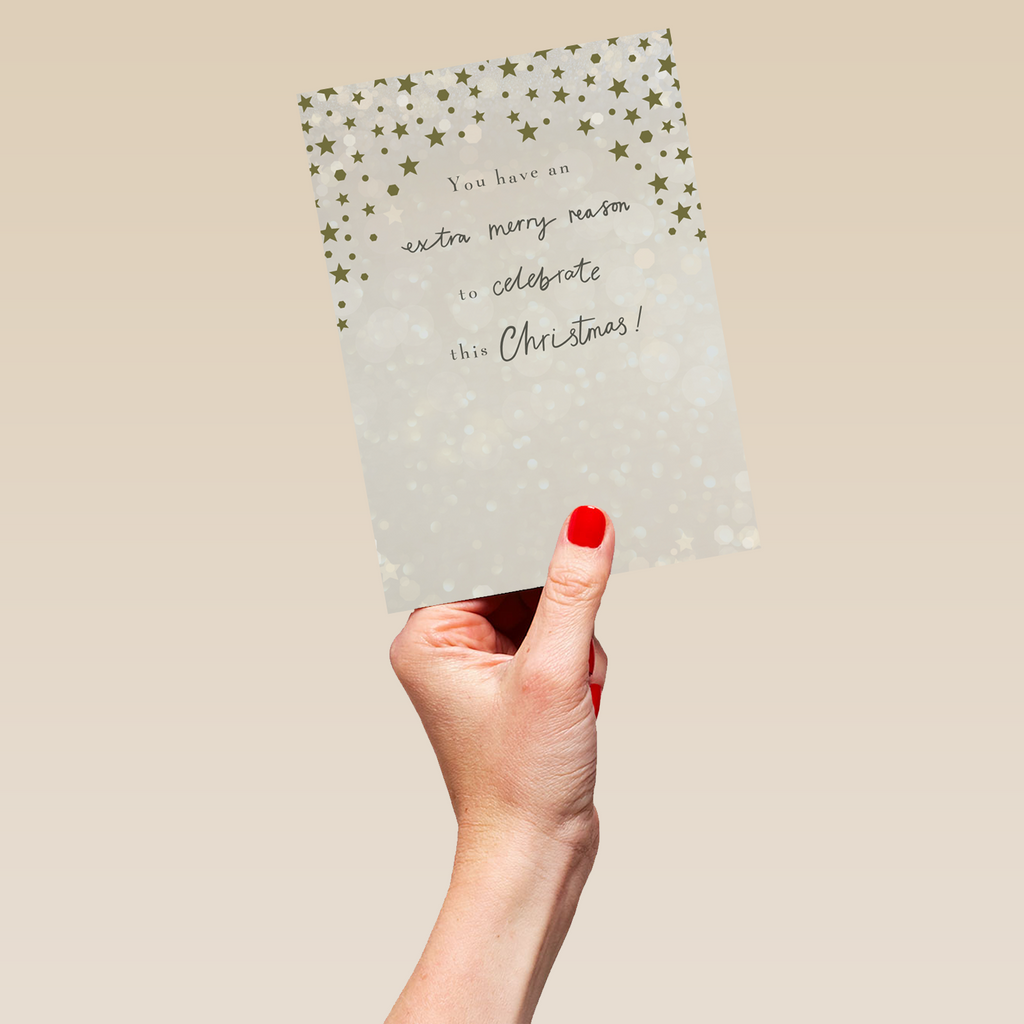 You have an
extra merry reason
to celebrate
this Christmas!